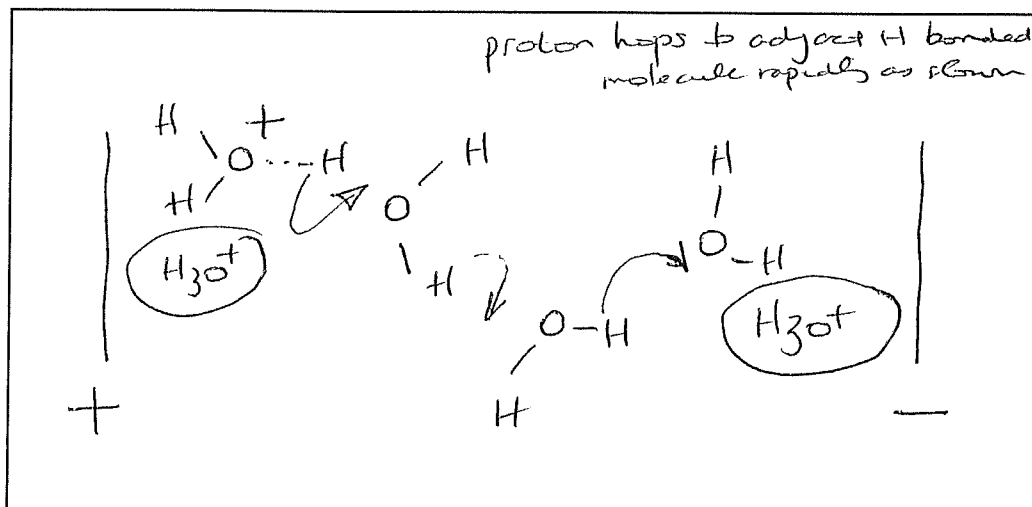 proton hops to adjacent H bonded
molecule rapidly as shown
H +
O H H H
H O
H3O+ H O H
O H H3O+
H
+ −